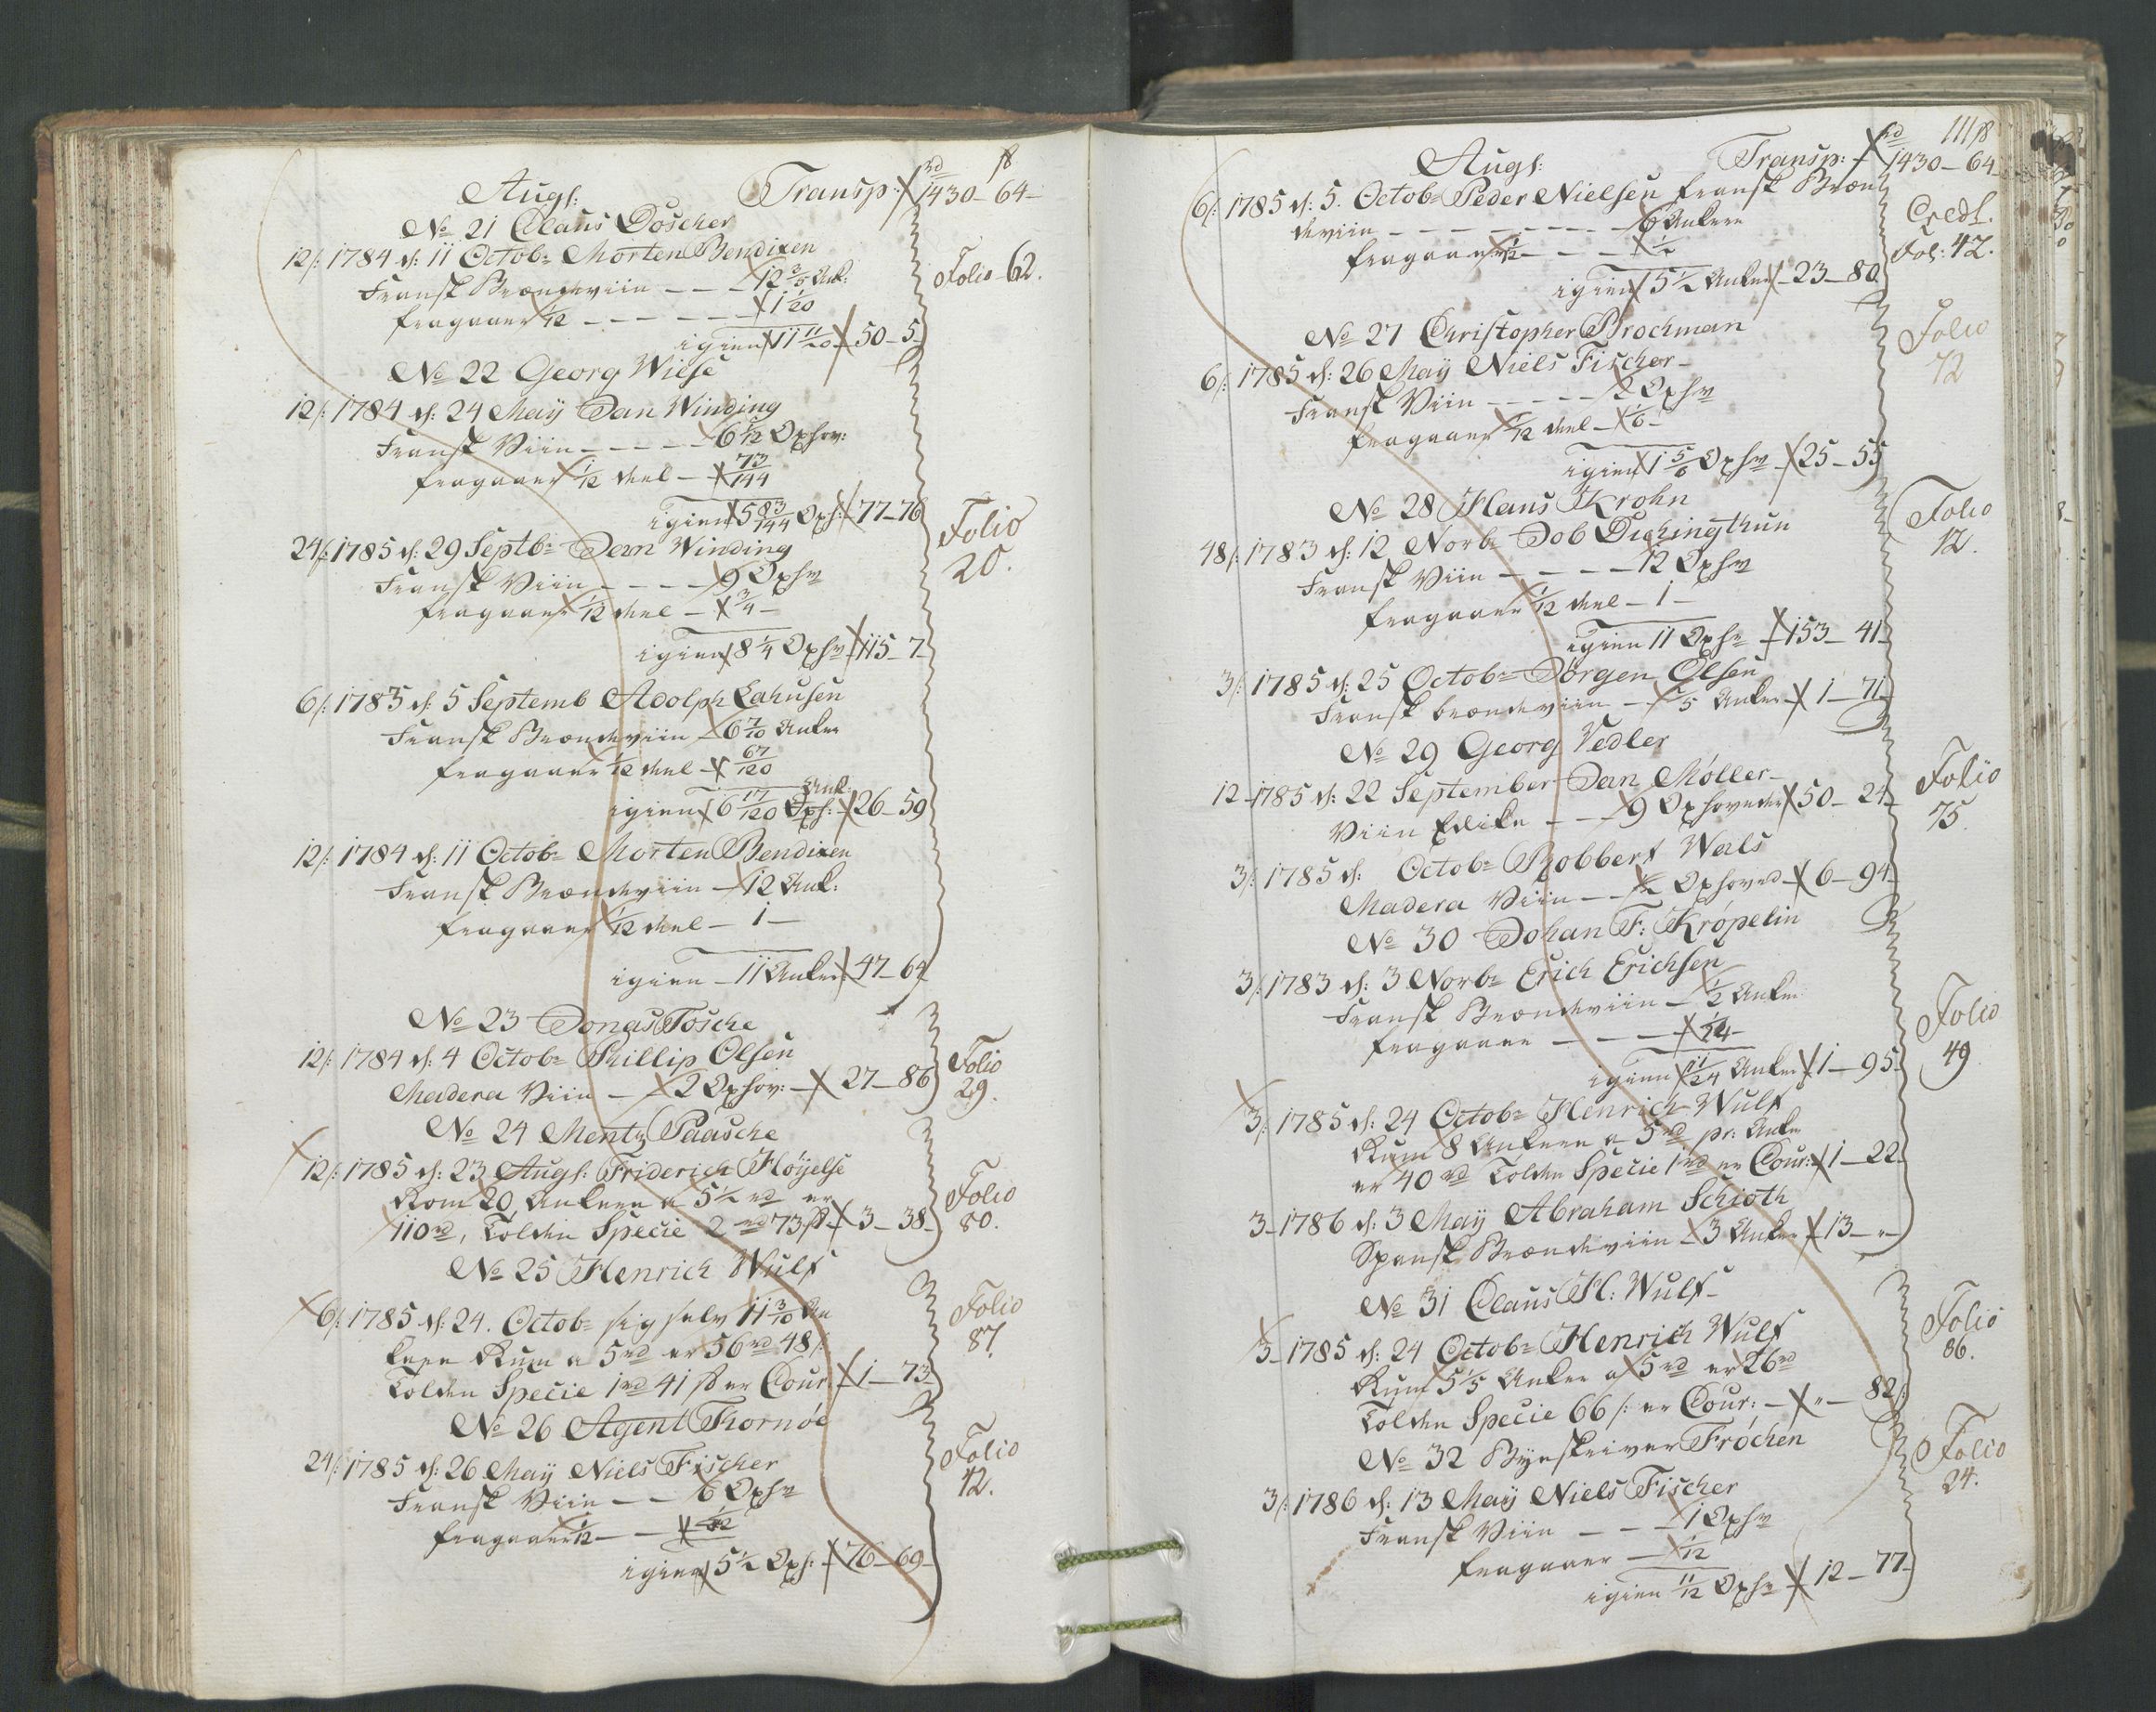 rd ß
Augs: Transp: 1430 - 64 -
No 21 Claus Doscher
12/: 1784 d: 11 Octob: Morten Bendixen
Fransk Brændeviin - - - 12 3/5 Ank:
fragaaer 1/12 - - - - - - 1 1/20
igien 11 11/20 50 - 5
Folio 62.
No 22 Georg Wilse
12/: 1784 d: 24 Maÿ Dan Winding
Fransk Viin - - - - - 6 1/12 Oxhov:
fragaaer 1/12 deel - 73/144
igien 5 83/144 Oxh: 77 - 76
24/: 1785 d: 29 Septb: Dan Winding
Fransk Viin - - - - - 9 Oxhv
fragaaer 1/12 deel - 3/4 -
igien 8 1/4 Oxhv 115 - 7
Folio
20.
6/: 1785 d: 5 Septemb Adolph Lahusen
Fransk Brændeviin 6 7/10 Anker
fragaaer 1/12 deel - 67/120
Ank:
igien 6 17/120 Oxh: 26 - 59
12/: 1784 d: 11 Octob: Morten Bendixen
Fransk Brændeviin - 12 Ank:
fragaaer 1/12 deel - 1 -
igien - 11 Anker 47 - 64
No 23 Jonas Tosche
12/: 1784 d: 4 Octob: Phillip Olsen
Madera Viin - - 2 Oxhov: - 27 - 86
Folio
29.
No 24 Mentz Paasche
12/: 1785 d: 23 Augs: Friderich Höÿelse
Rom 20, Ankere a 5 1/2 rd er
110 rd, Tolden Specie 2 rd 73 ß 3 - 38 -
Folio
80.
No 25 Henrich Wulf
6/: 1785 d: 24. Octob: sig selv 11 3/10 An
kere Rum a 5 rd er 56 rd 48/:
Tolden Specie 1 rd 41 ß er Cour: 1 - 73
Folio
87.
No 26 Agent Thornöe
24/: 1785 d: 26 Maÿ Niels Fischer
Fransk Viin - - 6 Oxhv
fragaaer 1/12 - - 1/2
igien 5 1/2 Oxh: 76 - 69 -
Folio
42.
111
rd ß
Augs: Transp: 1430 - 64
6/: 1785 d: 5. Octob: Peder Nielsen Fransk Bræn
deviin - - - - - - - - 6 Ankere
fragaaer 1/12 - - - 1/2
igien 5 1/2 Anker - 23 - 80
Credl.
Fol: 42.
No 27 Christopher Brochman
6/: 1785 d: 26 Maÿ Niels Fischer -
Fransk Viin - - - - - 2 Oxhv
fragaaer 1/12 deel - 1/6 -
igien 1 5/6 Oxhv 25 - 55
Folio
42
No 28 Hans Krohn
48/: 1783 d: 12 Novb:
Fransk Viin - - - - - 12 Oxhv
fragaaer 1/12 deel - 1 -
igien 11 Oxhv 153 - 41 -
Folio
12.
3/: 1785 d: 25 Octob: Jörgen Olsen
Fransk brændeviin - 5 Anker 1 - 71
No 29 Georg Vedler
12 - 1785 d: 22 September Dan Möller -
Viin Edike - - - 9 Oxhoveder 50 - 24
Folio
75.
3/: 1785 d: Octob: Robbert Wals
Madera Viin - - 1/2 Oxhoved 6 - 94
No 30 Johan F: Kröpelin
3/: 1783 d: 3 Novb: Erich Erichsen
Fransk Brændeviin - 1/2 Anker
fragaaer - - - - 1/24 -
igien 11/24 Anker 1 - 95
Folio
49.
3/: 1785 d: 24 Octob: Henrich Wulf
Rum 8 Ankere a 5 rd pr: Anker
er 40 rd Tolden Specie 1 rd er Cour: 1 - 22
3 - 1786 d: 3 Maÿ Abraham Schioth
Spansk Brændeviin - 3 Anker 13 - " -
No 31 Claus H: Wulf -
3 - 1785 d: 24 Octob: Henrich Wulf
Rum 5 1/5 Anker a 5 rd er 26 rd
Tolden Specie 66/: er Cour: - " - 82/:
Folio
86.
No 32 Byeskriver Fröchen
3/: 1786 d: 13 Maÿ Niels Fischer
Fransk Viin - - - 1 Oxhv
fragaaer - 1/12
igien 11/12 Oxhv 12 - 77 -
Folio
24.